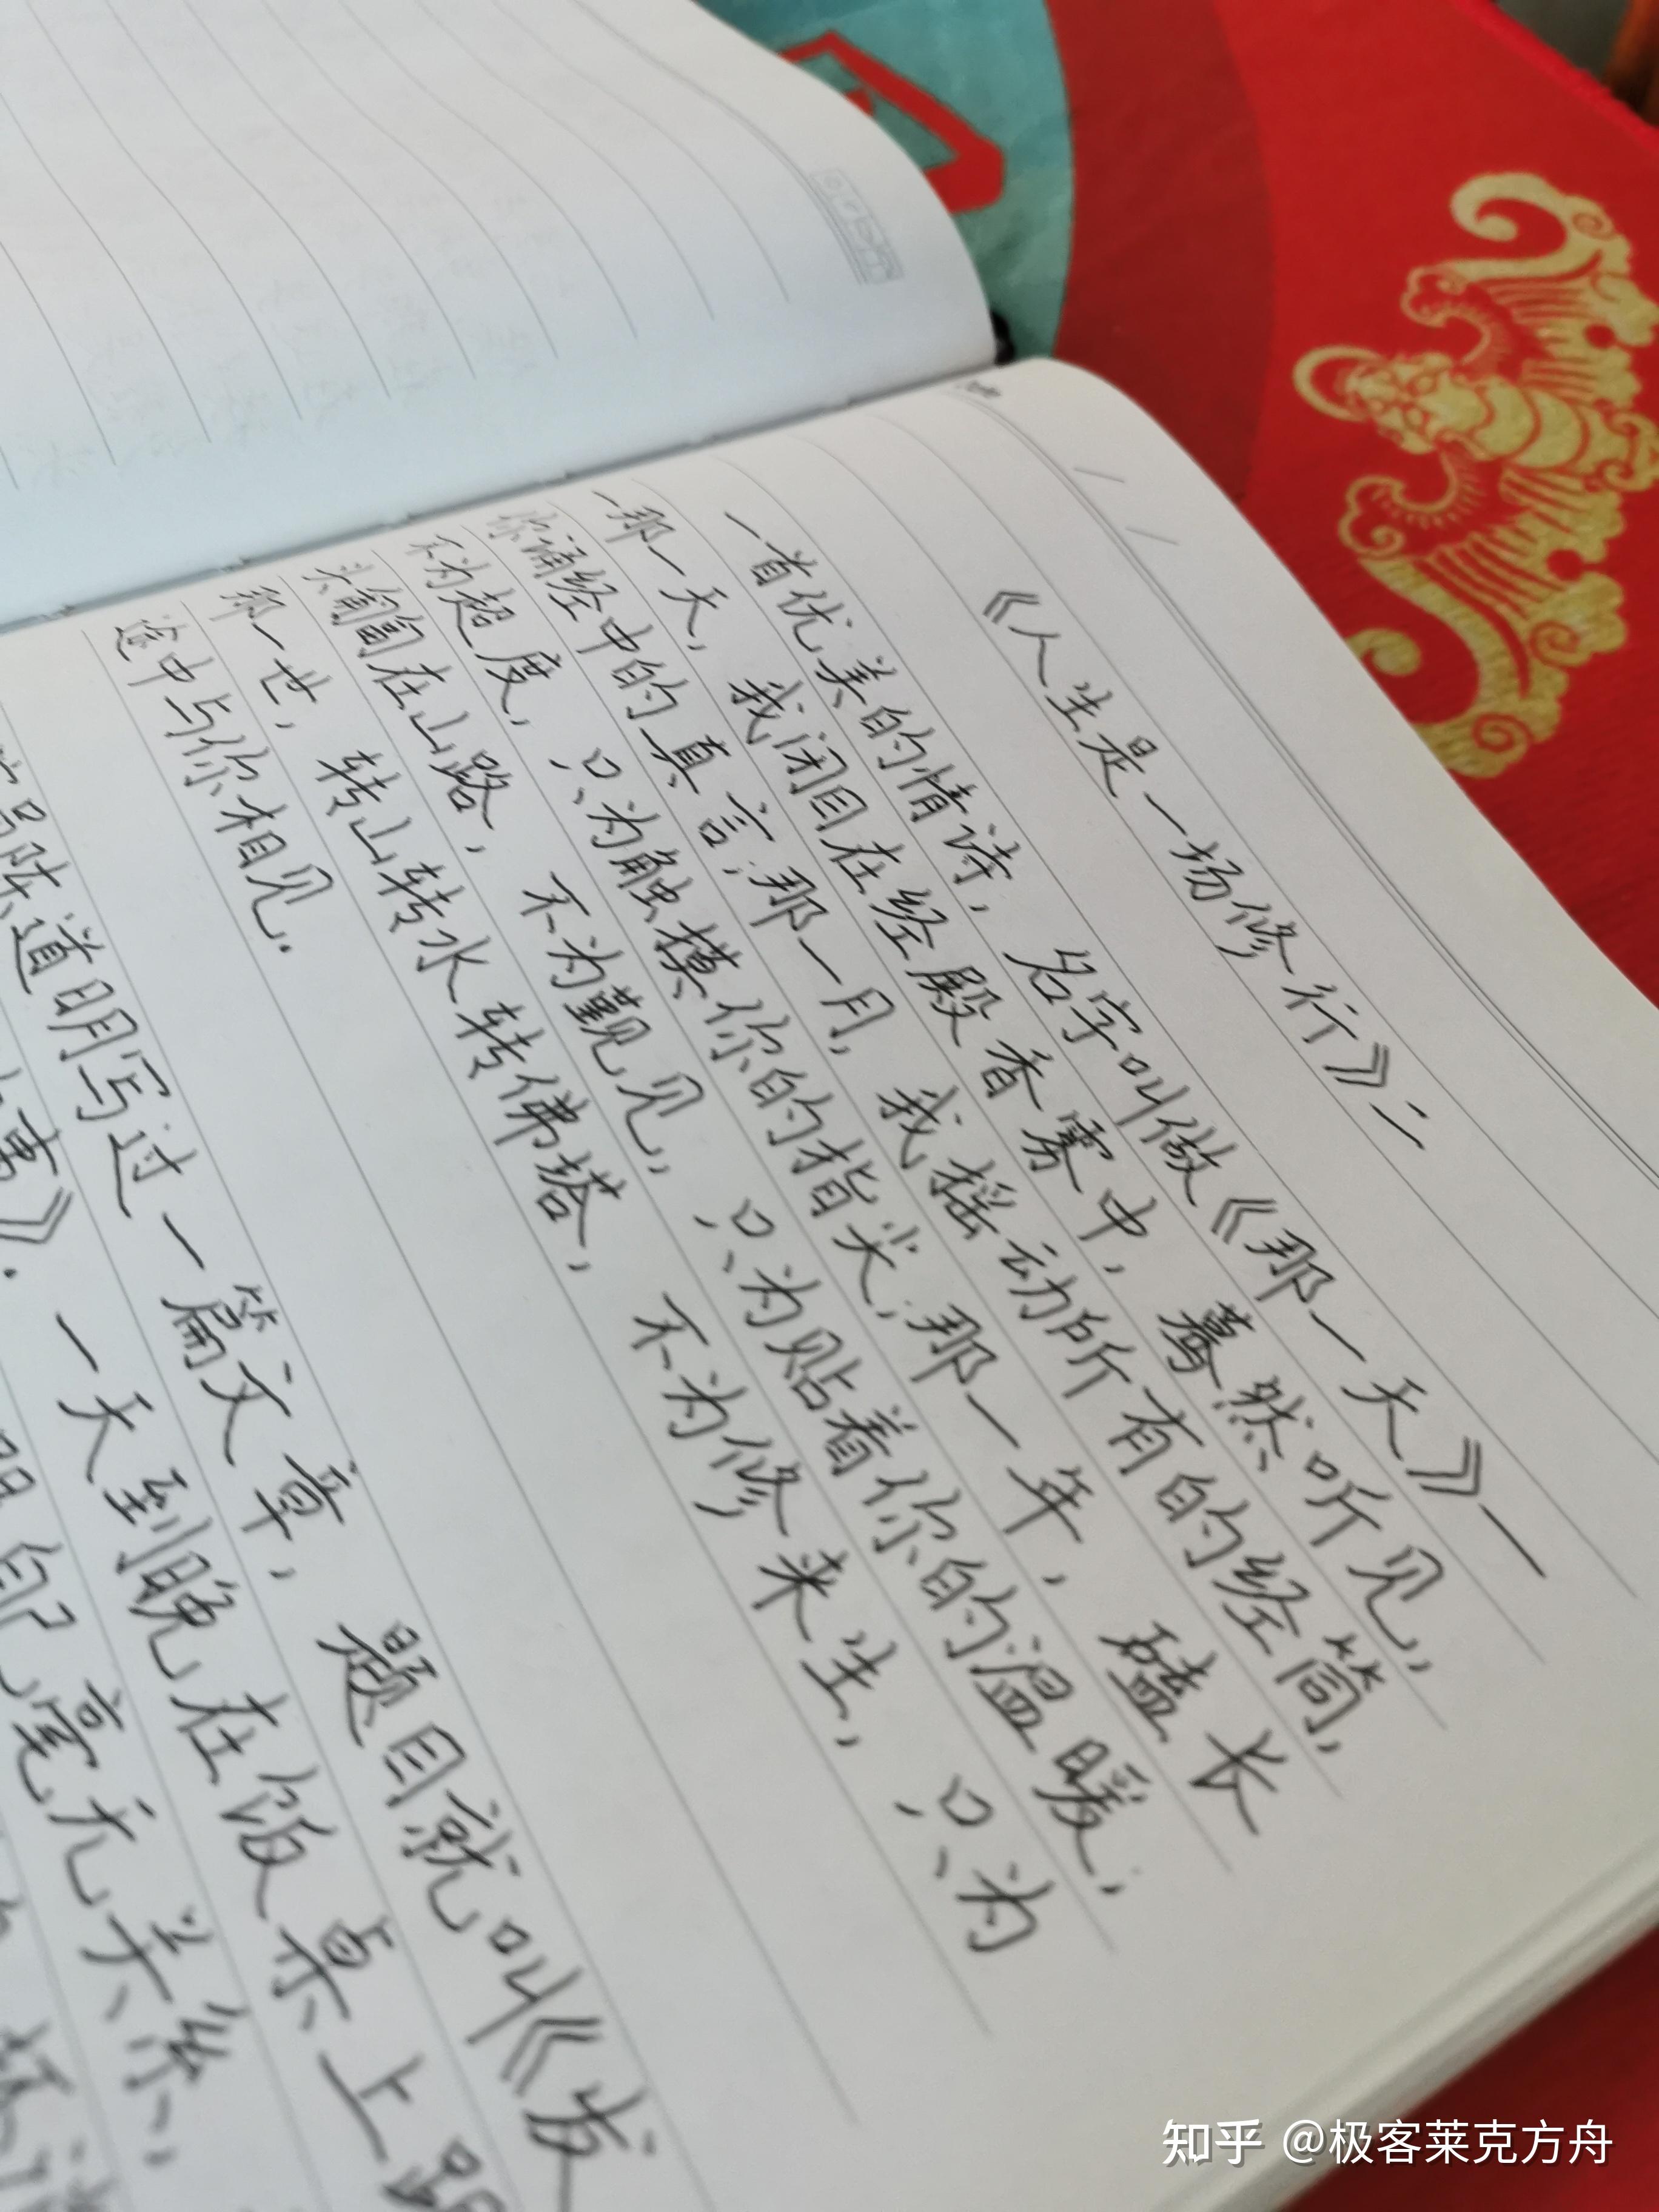 《人生是一场修行》二
一首优美的情诗，名字叫做《那一天》一
一那一天，我闭目在经殿香雾中，蓦然听见，
你诵经中的真言；那一月，我摇动所有的经筒，
不为超度，只为触摸你的指尖；那一年，磕长
头匍匐在山路，不为觐见，只为贴着你的温暖；
那一世，转山转水转佛塔，不为修来生，只为
途中与你相见.
陈道明写过一篇文章，题目就叫《发
》. 一天到晚在饭桌上跟
自己毫无关系，
知乎 @极客莱克方舟